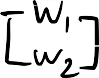 [W₁
W₂]